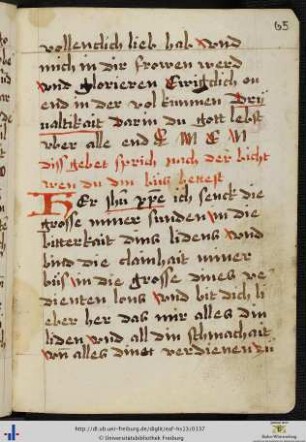 65
vollenclich lieb hab vnd
mich in dir frowen werd
vnd glorieren Ewigclich on
end in der vol kumnen Drÿ
ualtikait darin du gott lebst
vber alle end A M E N
diss gebet sprich nach der bicht
wen du din bůss hettest
HEr jhu xpe ich senck die
grosse miner sunden in die
bitterkait dins lidens vnd
bind die clainhait miner
bůs in die grosse dines ve
dienten lons vnd bit dich li
eber her das mir alles din
liden vnd all din schmachait
von alles dines verdienen zů
http://dl.ub.uni-freiburg.de/diglit/maf-hs13/0337
© Universitätsbibliothek Freiburg
Baden-Württemberg